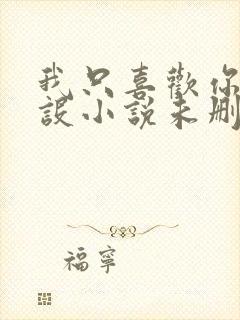 我只喜歡你
設小說未刪
福寧